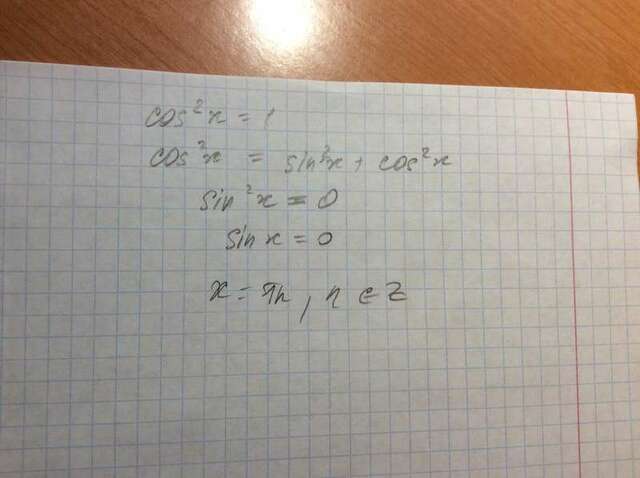 cos²x = 1
cos²x = sin²x + cos²x
sin²x = 0
sin x = 0
x = πn, n ∈ Z